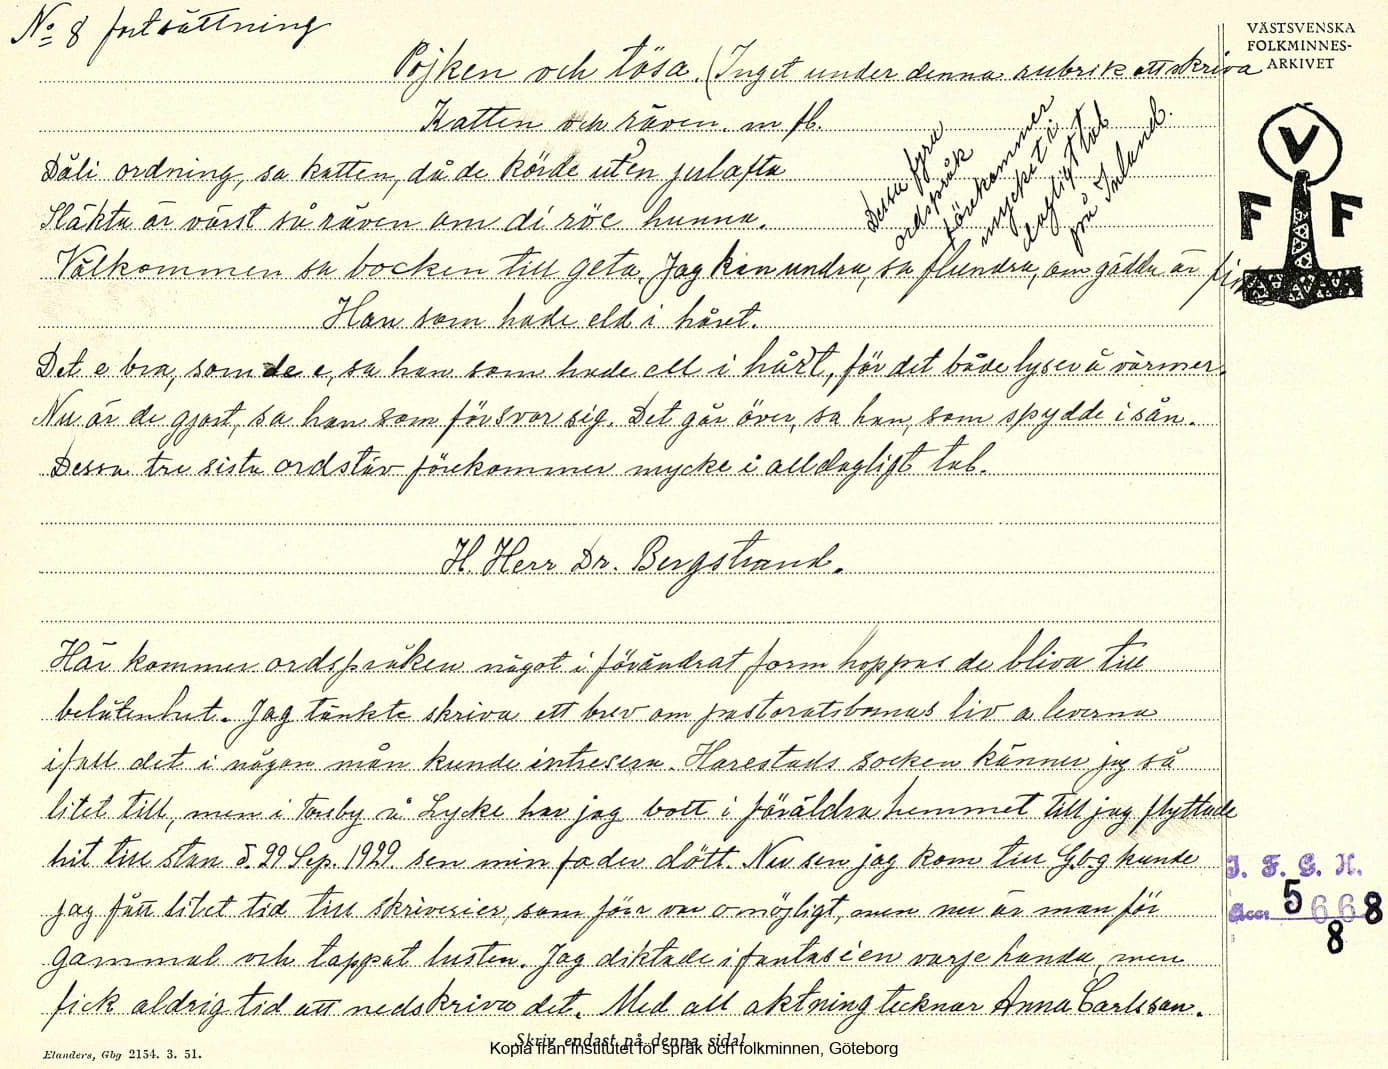 No 8 fortsättning
VÄSTSVENSKA
FOLKMINNES-
ARKIVET
V
F F
Pojken och tösa. (Inget under denna rubrik att skriva
Katten och räven. m fl.
Dåli ordning, sa katten, då de körde ut'en julafta
Släkta är värst sa räven om di röe hunna.
Välkommen sa bocken till geta. Jag kan undra, sa flundra, om gädda är fisk
Dessa fyra
ordspråk
förekommer
mycket i
dagligt tal
på Inland.
Han som hade eld i håret.
Det e bra, som de e, sa han som hade ell i hårt, för det både lyser å värmer.
Nu är de gjort, sa han som försvor sig. Det går över, sa han, som spydde i sån.
Dessa tre sista ordstäv förekommer mycke i alldagligt tal.
H. Herr Dr. Bergstrand.
Här kommer ordspråken något i förändrat form hoppas de bliva till
belåtenhet. Jag tänkte skriva ett brev om pastoratsbornas liv a leverna
ifall det i någon mån kunde intresera. Harestads socken känner jag så
litet till, men i Torsby å Lycke har jag bott i föräldra hemmet till jag flyttade
hit till stan d. 29 Sep. 1929 sen min fader dött. Nu sen jag kom till Gbg kunde
jag fått litet tid till skriverier, som förr var omöjligt, men nu är man för
gammal och tappat lusten. Jag diktade i fantasien varje handa, men
fick aldrig tid att nedskriva det. Med all aktning tecknar Anna Carlsson.
I. F. G. H.
Acc. 5668
8
Skriv endast på denna sida!
Kopia från Institutet för språk och folkminnen, Göteborg
Elanders, Gbg 2154. 3. 51.